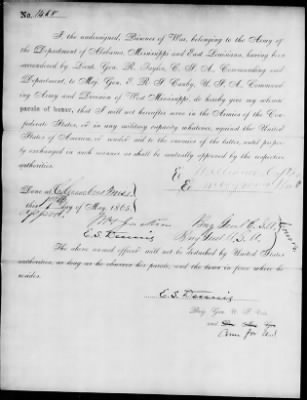 No. 1468
I the undersigned, Prisoner of War, belonging to the Army of
the Department of Alabama, Mississippi and East Louisiana, having been
surrendered by Lieut. Gen. R. Taylor, C. S. A., Commanding said
Department, to Maj. Gen. E. R. S. Canby, U. S. A., Command-
ing Army and Division of West Mississippi, do hereby give my solemn
parole of honor, that I will not hereafter serve in the Armies of the Con-
federate States, or in any military capacity whatever, against the United
States of America, or render aid to the enemies of the latter, until prop-
erly exchanged in such manner as shall be mutually approved by the respective
authorities.
Done at Columbus Miss
this day of May 1865.
approved
E. S. Dennis Brig Genl U.S.V.
The above named officer will not be disturbed by United States
authorities, as long as he observes his parole, and the laws in force where he
resides.
E. S. Dennis
Brig. Gen. U. S. Vols.
and
Com for U.S.